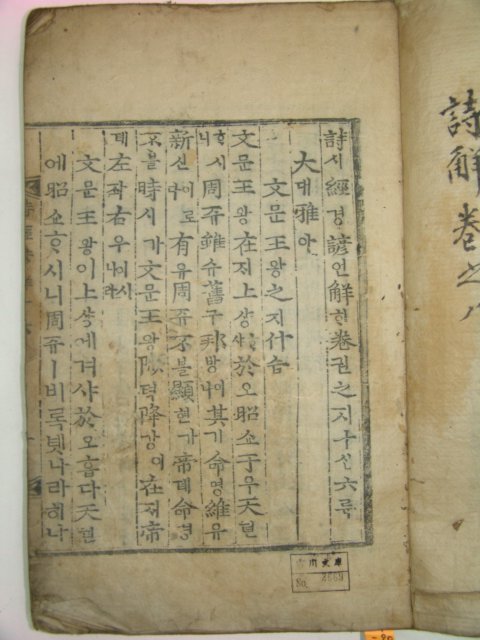 詩解 卷之八
詩시經경諺언解ᄒᆡ卷권之지十십六륙
大대雅아
文문王왕之지什십
文문王왕在ᄌᆡ上샹ᄒᆞ샤於오昭쇼于우天텬
ᄒᆞ시니周쥬雖슈舊구邦방이나其기命명維유
新신이로다有유周쥬不블顯현가帝뎨命명
不블時시가文문王왕陟텩降강이在ᄌᆡ帝
뎨左좌右우ㅣ시니라
文문王왕이上샹에겨샤於오홉다天텬
에昭쇼ᄒᆞ시니周쥬ㅣ비록녯나라히나